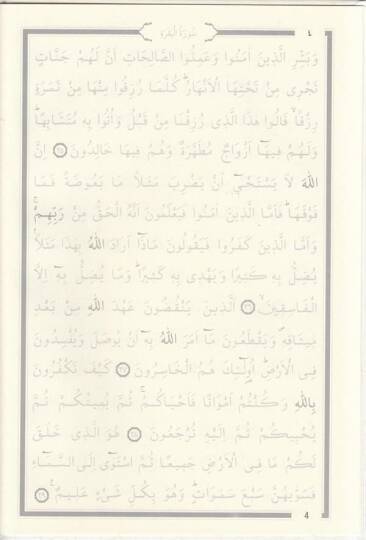 ٤
سُورَةُ الْبَقَرَةِ
وَبَشِّرِ الَّذِينَ اٰمَنُوا وَعَمِلُوا الصَّالِحَاتِ اَنَّ لَهُمْ جَنَّاتٍ
تَجْرِى مِنْ تَحْتِهَا الْاَنْهَارُۜ كُلَّمَا رُزِقُوا مِنْهَا مِنْ ثَمَرَةٍ
رِزْقًاۙ قَالُوا هٰذَا الَّذِى رُزِقْنَا مِنْ قَبْلُ وَاُتُوا بِهِ مُتَشَابِهًاۜ
وَلَهُمْ فِيهَٓا اَزْوَاجٌ مُطَهَّرَةٌ وَهُمْ فِيهَا خَالِدُونَ ﴿٢٥﴾ اِنَّ
اللّٰهَ لَا يَسْتَحْيٖٓ اَنْ يَضْرِبَ مَثَلًا مَا بَعُوضَةً فَمَا
فَوْقَهَاۜ فَاَمَّا الَّذِينَ اٰمَنُوا فَيَعْلَمُونَ اَنَّهُ الْحَقُّ مِنْ رَبِّهِمْۚ
وَاَمَّا الَّذِينَ كَفَرُوا فَيَقُولُونَ مَاذَٓا اَرَادَ اللّٰهُ بِهٰذَا مَثَلًاۢ
يُضِلُّ بِهِ كَثِيرًا وَيَهْدِى بِهِ كَثِيرًاۜ وَمَا يُضِلُّ بِهِٓ اِلَّا
الْفَاسِقِينَۙ ﴿٢٦﴾ اَلَّذِينَ يَنْقُضُونَ عَهْدَ اللّٰهِ مِنْ بَعْدِ
مِيثَاقِهِ وَيَقْطَعُونَ مَٓا اَمَرَ اللّٰهُ بِهِٓ اَنْ يُوصَلَ وَيُفْسِدُونَ
فِى الْاَرْضِۜ اُو۬لٰٓئِكَ هُمُ الْخَاسِرُونَ ﴿٢٧﴾ كَيْفَ تَكْفُرُونَ
بِاللّٰهِ وَكُنْتُمْ اَمْوَاتًا فَاَحْيَاكُمْۚ ثُمَّ يُمِيتُكُمْ ثُمَّ
يُحْيِيكُمْ ثُمَّ اِلَيْهِ تُرْجَعُونَ ﴿٢٨﴾ هُوَ الَّذِى خَلَقَ
لَكُمْ مَا فِى الْاَرْضِ جَمِيعًا ثُمَّ اسْتَوٰٓى اِلَى السَّمَٓاءِ
فَسَوّٰيهُنَّ سَبْعَ سَمٰوَاتٍۜ وَهُوَ بِكُلِّ شَىْءٍ عَلِيمٌ۟ ﴿٢٩﴾
4